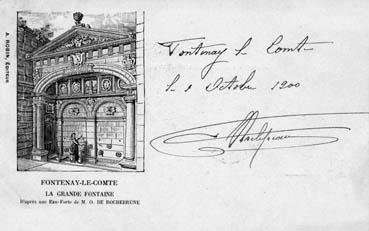 A. ROBIN, ÉDITEUR
FONTENAY-LE-COMTE
LA GRANDE FONTAINE
D'après une Eau-Forte de M. O. DE ROCHEBRUNE
Fontenay le Comte
le 2 Octobre 1900